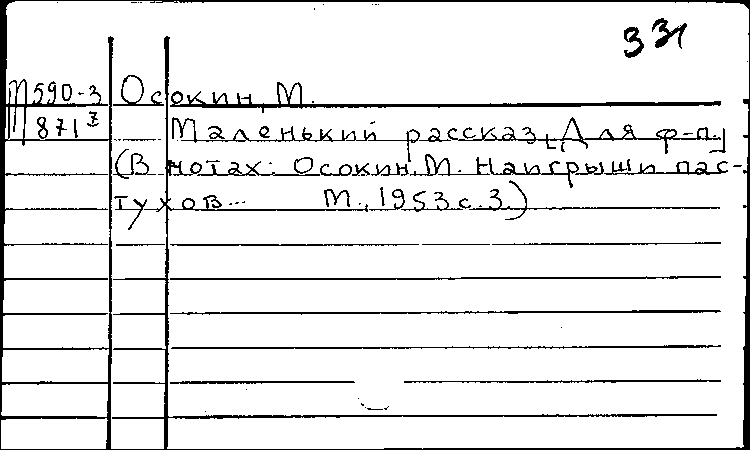 331
М590-3 Осокин, М.
871 I Маленький рассказ. [Для ф-п.]
(В нотах: Осокин, М. Наигрыши пас-
тухов... М., 1953 с. 3.)